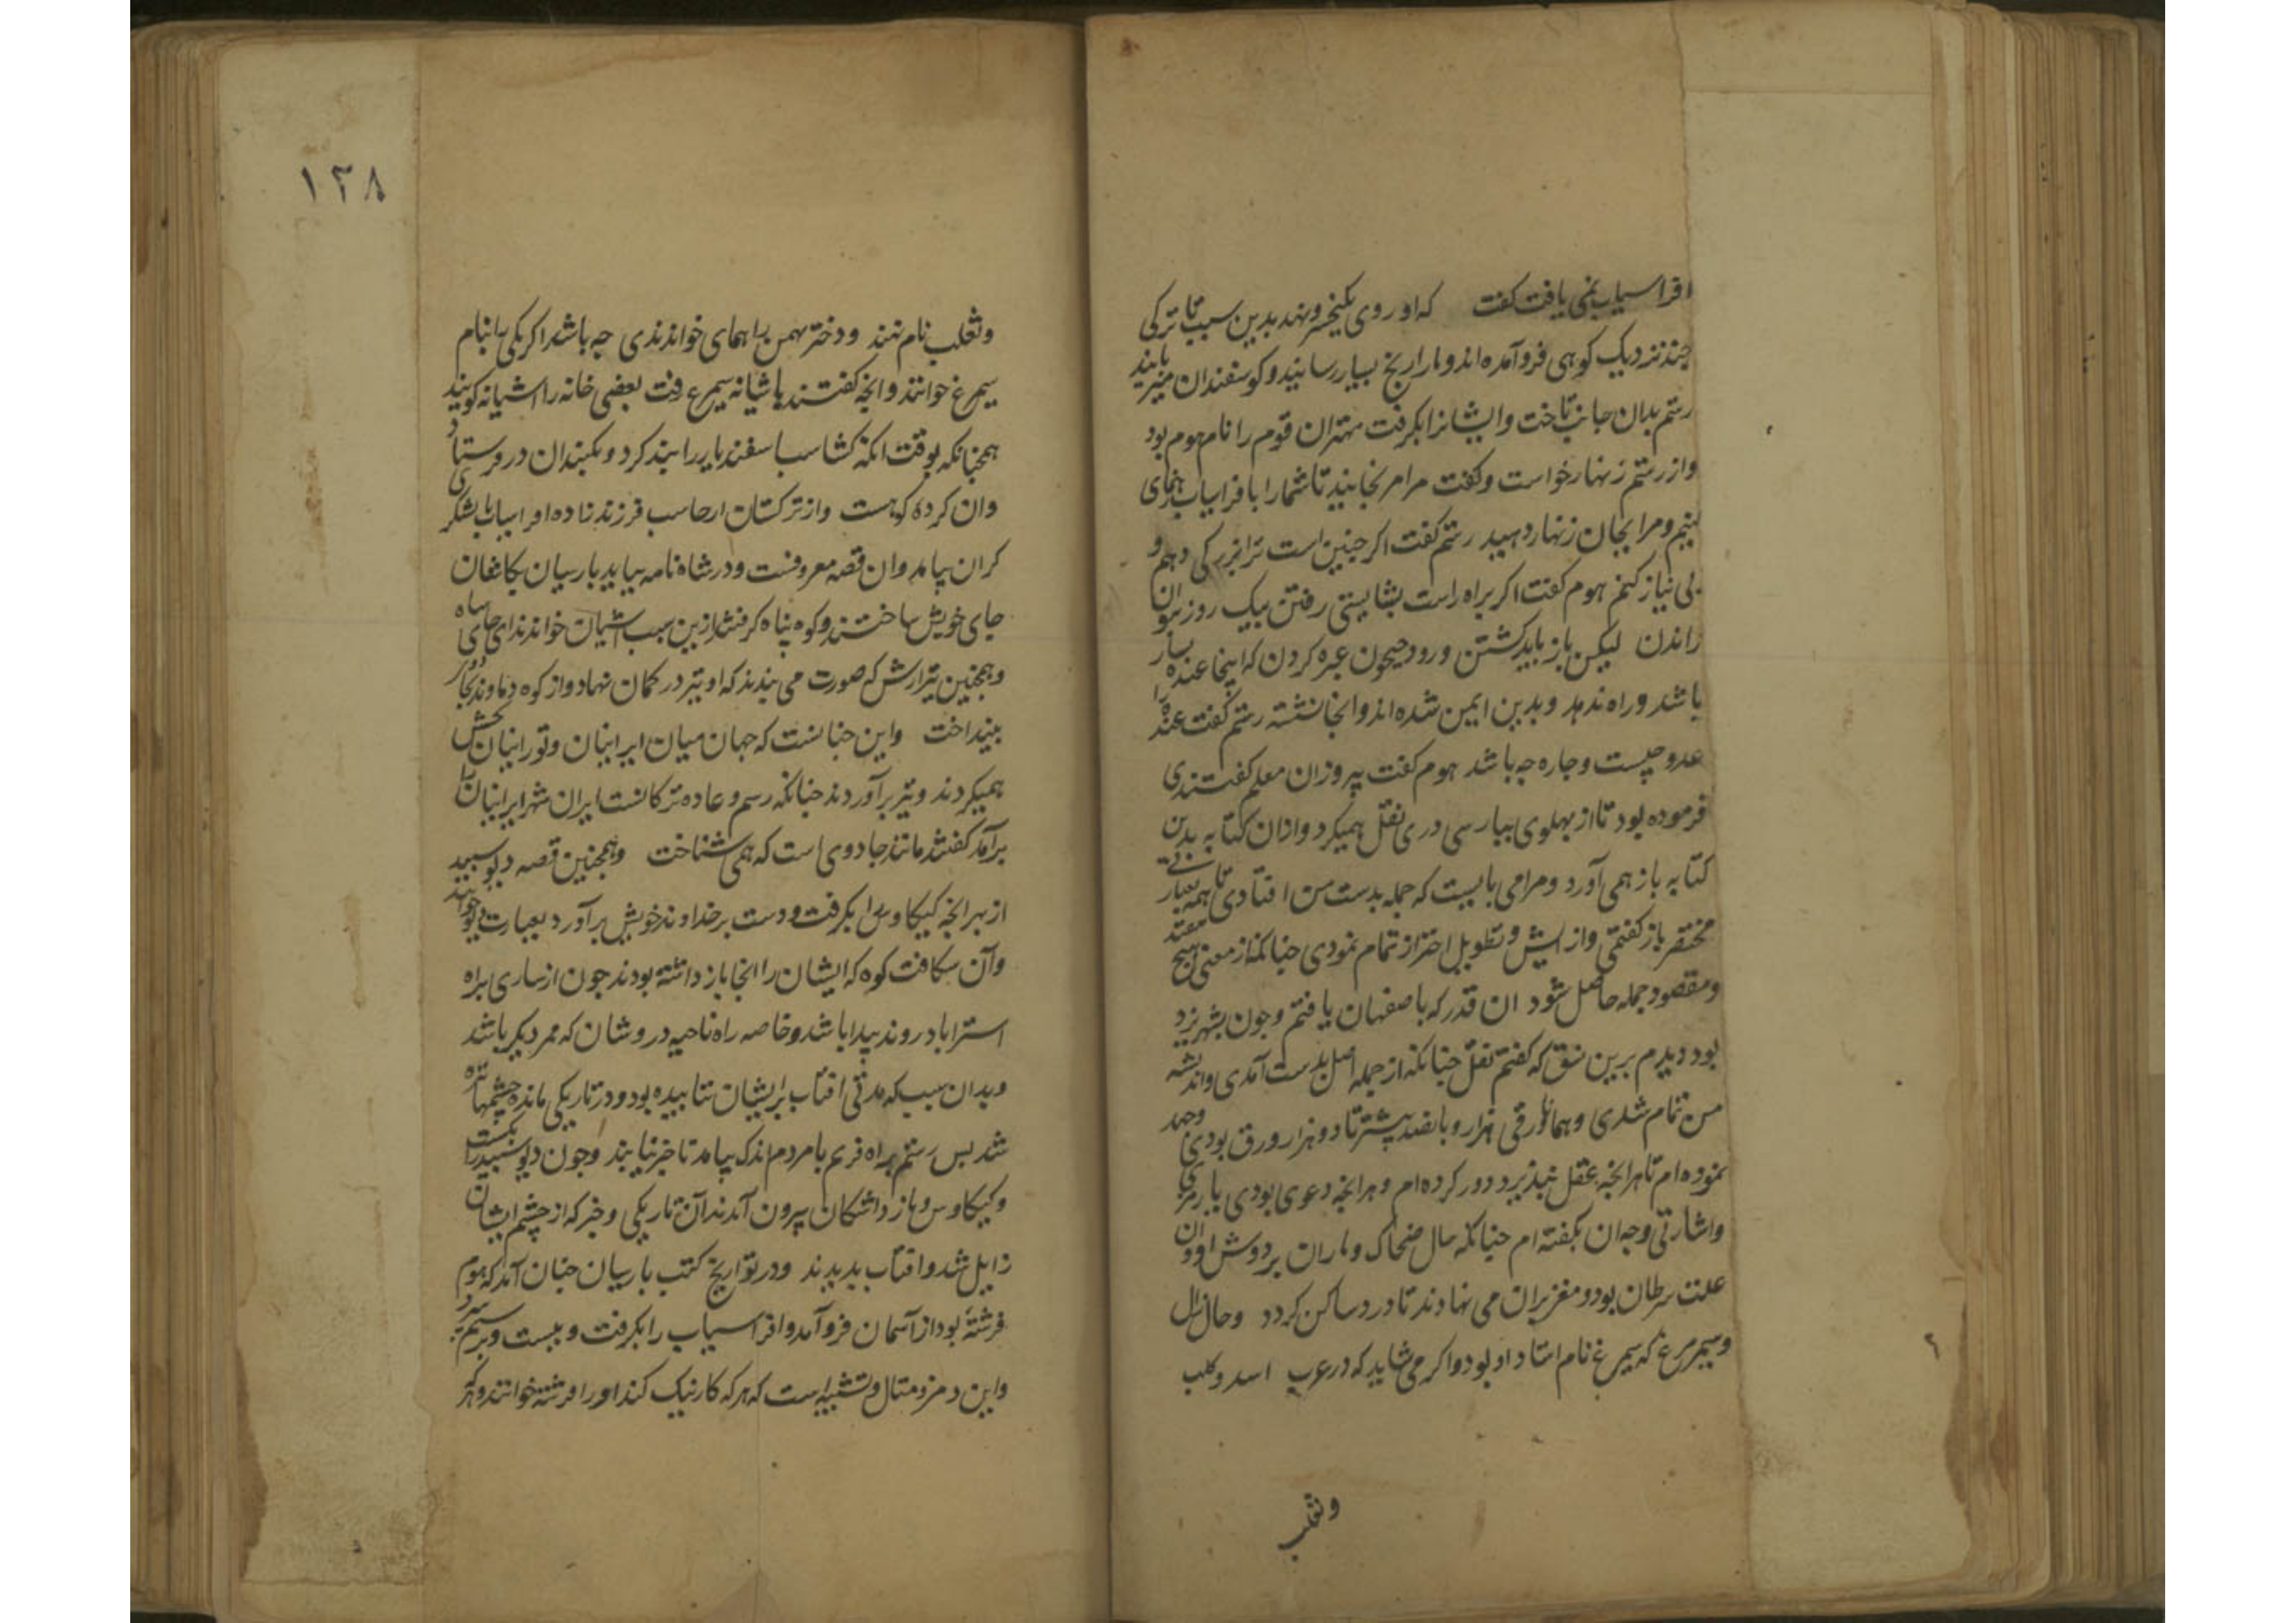 افراسیاب نمی یافت کفت که او روی بکیخسرو نهد بدین سبب تا ترکی
چند نزدیک کوهی فروآمده اند و ما را رنج بسیار رسانیدو کوسفندان میربایند
رستم بدان جانب تاخت وایشانرا بکرفت مهتران قوم را نام هوم بود
واز رستم زنهار خواست وکفت مرا مرنجانید تا شمارا بافراسیاب رهنمای
کنیم ومرا بجان زنهار دهید رستم کفت اکر چنین است ترا بزرکی دهم و
بی نیاز کنم هوم کفت اکر براه راست بشایستی رفتن بیک روز توان
راندن لیکن باز باید کشتن ورود جیحون عبره کردن که اینجا عنده بسیار
باشد وراه ندهد وبدین ایمن شده اند وانجا نشسته رستم کفت عنده را
عدو چیست وچاره چه باشد هوم کفت پیروزان معلم کفتندی
فرموده بود تا از بهلوی ببارسی دری نقل همیکرد وازان کتابه بدین
کتابه باز همی آورد ومرا می بایست که جمله بدست من افتادی تا همه بعبارتی
مختصر باز کفتمی واز ایش وتطویل احتراز تمام نمودی چنانکه از معنی هیچ نیفتد
ومقصود جمله حاصل شود ان قدر که باصفهان یافتم وچون بشهر یزد
بود دیدم برین نسق که کفتم نقل چنانکه از جمله اصل بدست آمدی واندیشه
من تمام شدی وهمانا ورقی هزار وبانصد بیشتر تا دو هزار ورق بودی وجهد
نموده ام تا هرانچه عقل نپذیرد دور کرده ام وهرانچه دعوی بودی با رمزی
واشارتی وجه ان بکفته ام چنانکه حال ضحاک وماران بر دوش او وان
علت سرطان بود ومغز بران می نهادند تا درد ساکن کردد وحال زال
وسیمرمرغ که سیمرغ نام استاد او بود واکر می شاید که در عرب اسد وکلب
وثعلب
۱۲۸
وثعلب نام نهند ودختر بهمن را همای خواندندی چه باشد اکر یکی را نام
سیمرغ خوانند وانچه کفتند باشیانه سیمرغ رفت بعضی خانه را اشیانه کویند
همچنانکه بوقت انکه کشتاسب اسفندیار را بند کرد وبکنبدان در فرستاد
وان کرده کوهست واز ترکستان ارجاسب فرزند زاده افراسیاب با لشکر
کران بیامد وان قصه معروفست ودر شاه نامه بیاید بارسیان بکاشغان
جای خویش ساختند وکوه پناه کرفتند ازین سبب اشیان خواندند ای جای پناه
وهمچنین تیر ارش که صورت می بندند که او تیر در کمان نهاد واز کوه دماوند بکار
بینداخت واین چنانست که جهان میان ایرانیان وتورانیان بخش
همیکردند وتیر برآوردند چنانکه رسم وعاده ترکانست ایران شهر ایرانیان را
برآمد کفتند مانند جادوی است که همی شناخت وهمچنین قصه دیو سبید
از بهر انچه کیکاوس را بکرفت ودست بر خداوند خویش برآورد بعبارت دیو خوانند
وآن شکافت کوه که ایشان را انجا باز داشته بودند چون از ساری براه
استراباد روند بیدا باشد وخاصه راه ناحیه در وشان که ممر دیکر باشد
وبدان سبب که مدتی افتاب بر ایشان نتابیده بود ودر تاریکی مانده چشمها تیره
شد بس رستم براه فریم با مردم اندک بیامد تا خبر نیابند وچون دیو سبید را بکشت
وکیکاوس وباز داشتکان بیرون آمدند آن تاریکی وخیرکی از چشم ایشان
زایل شد وافتاب بدیدند ودر تواریخ کتب بارسیان چنان آمد که هوم
فرشتۀ بود از آسمان فروآمد وافراسیاب را بکرفت وببست وبرستم سپرد
واین رمز ومثال وتشبیه است که هر که کار نیک کند اورا فرشته خوانند وهر که